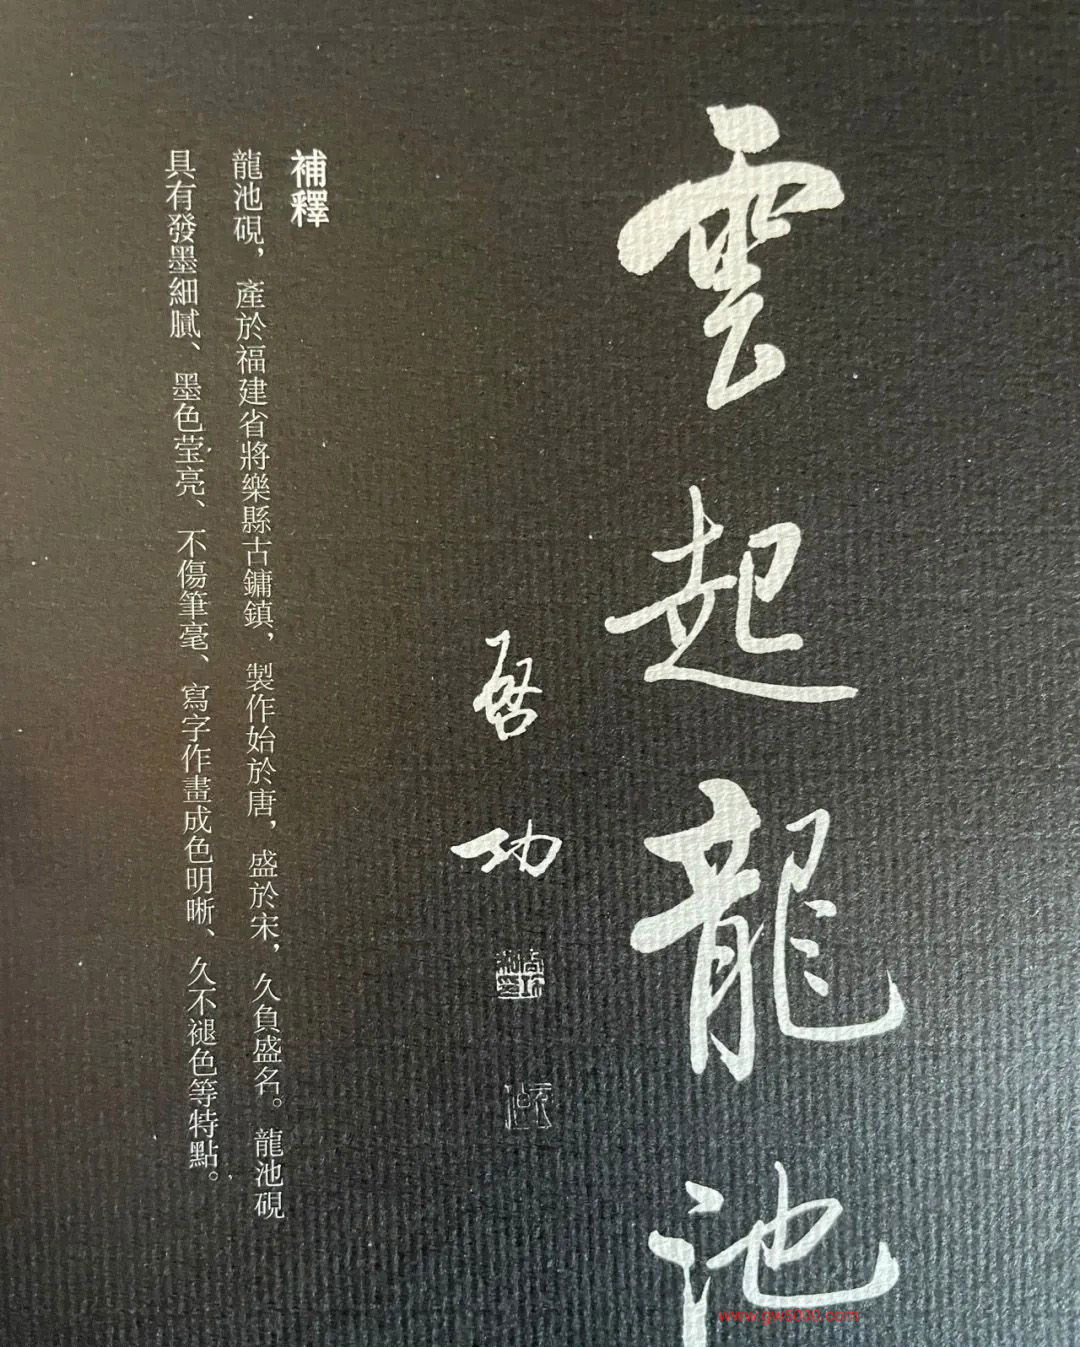 雲起龍池
啓功
補釋
龍池硯，產於福建省將樂縣古鏞鎮，製作始於唐，盛於宋，久負盛名。龍池硯
具有發墨細膩、墨色莹亮、不傷筆毫、寫字作畫成色明晰、久不褪色等特點。
www.gw5030.com